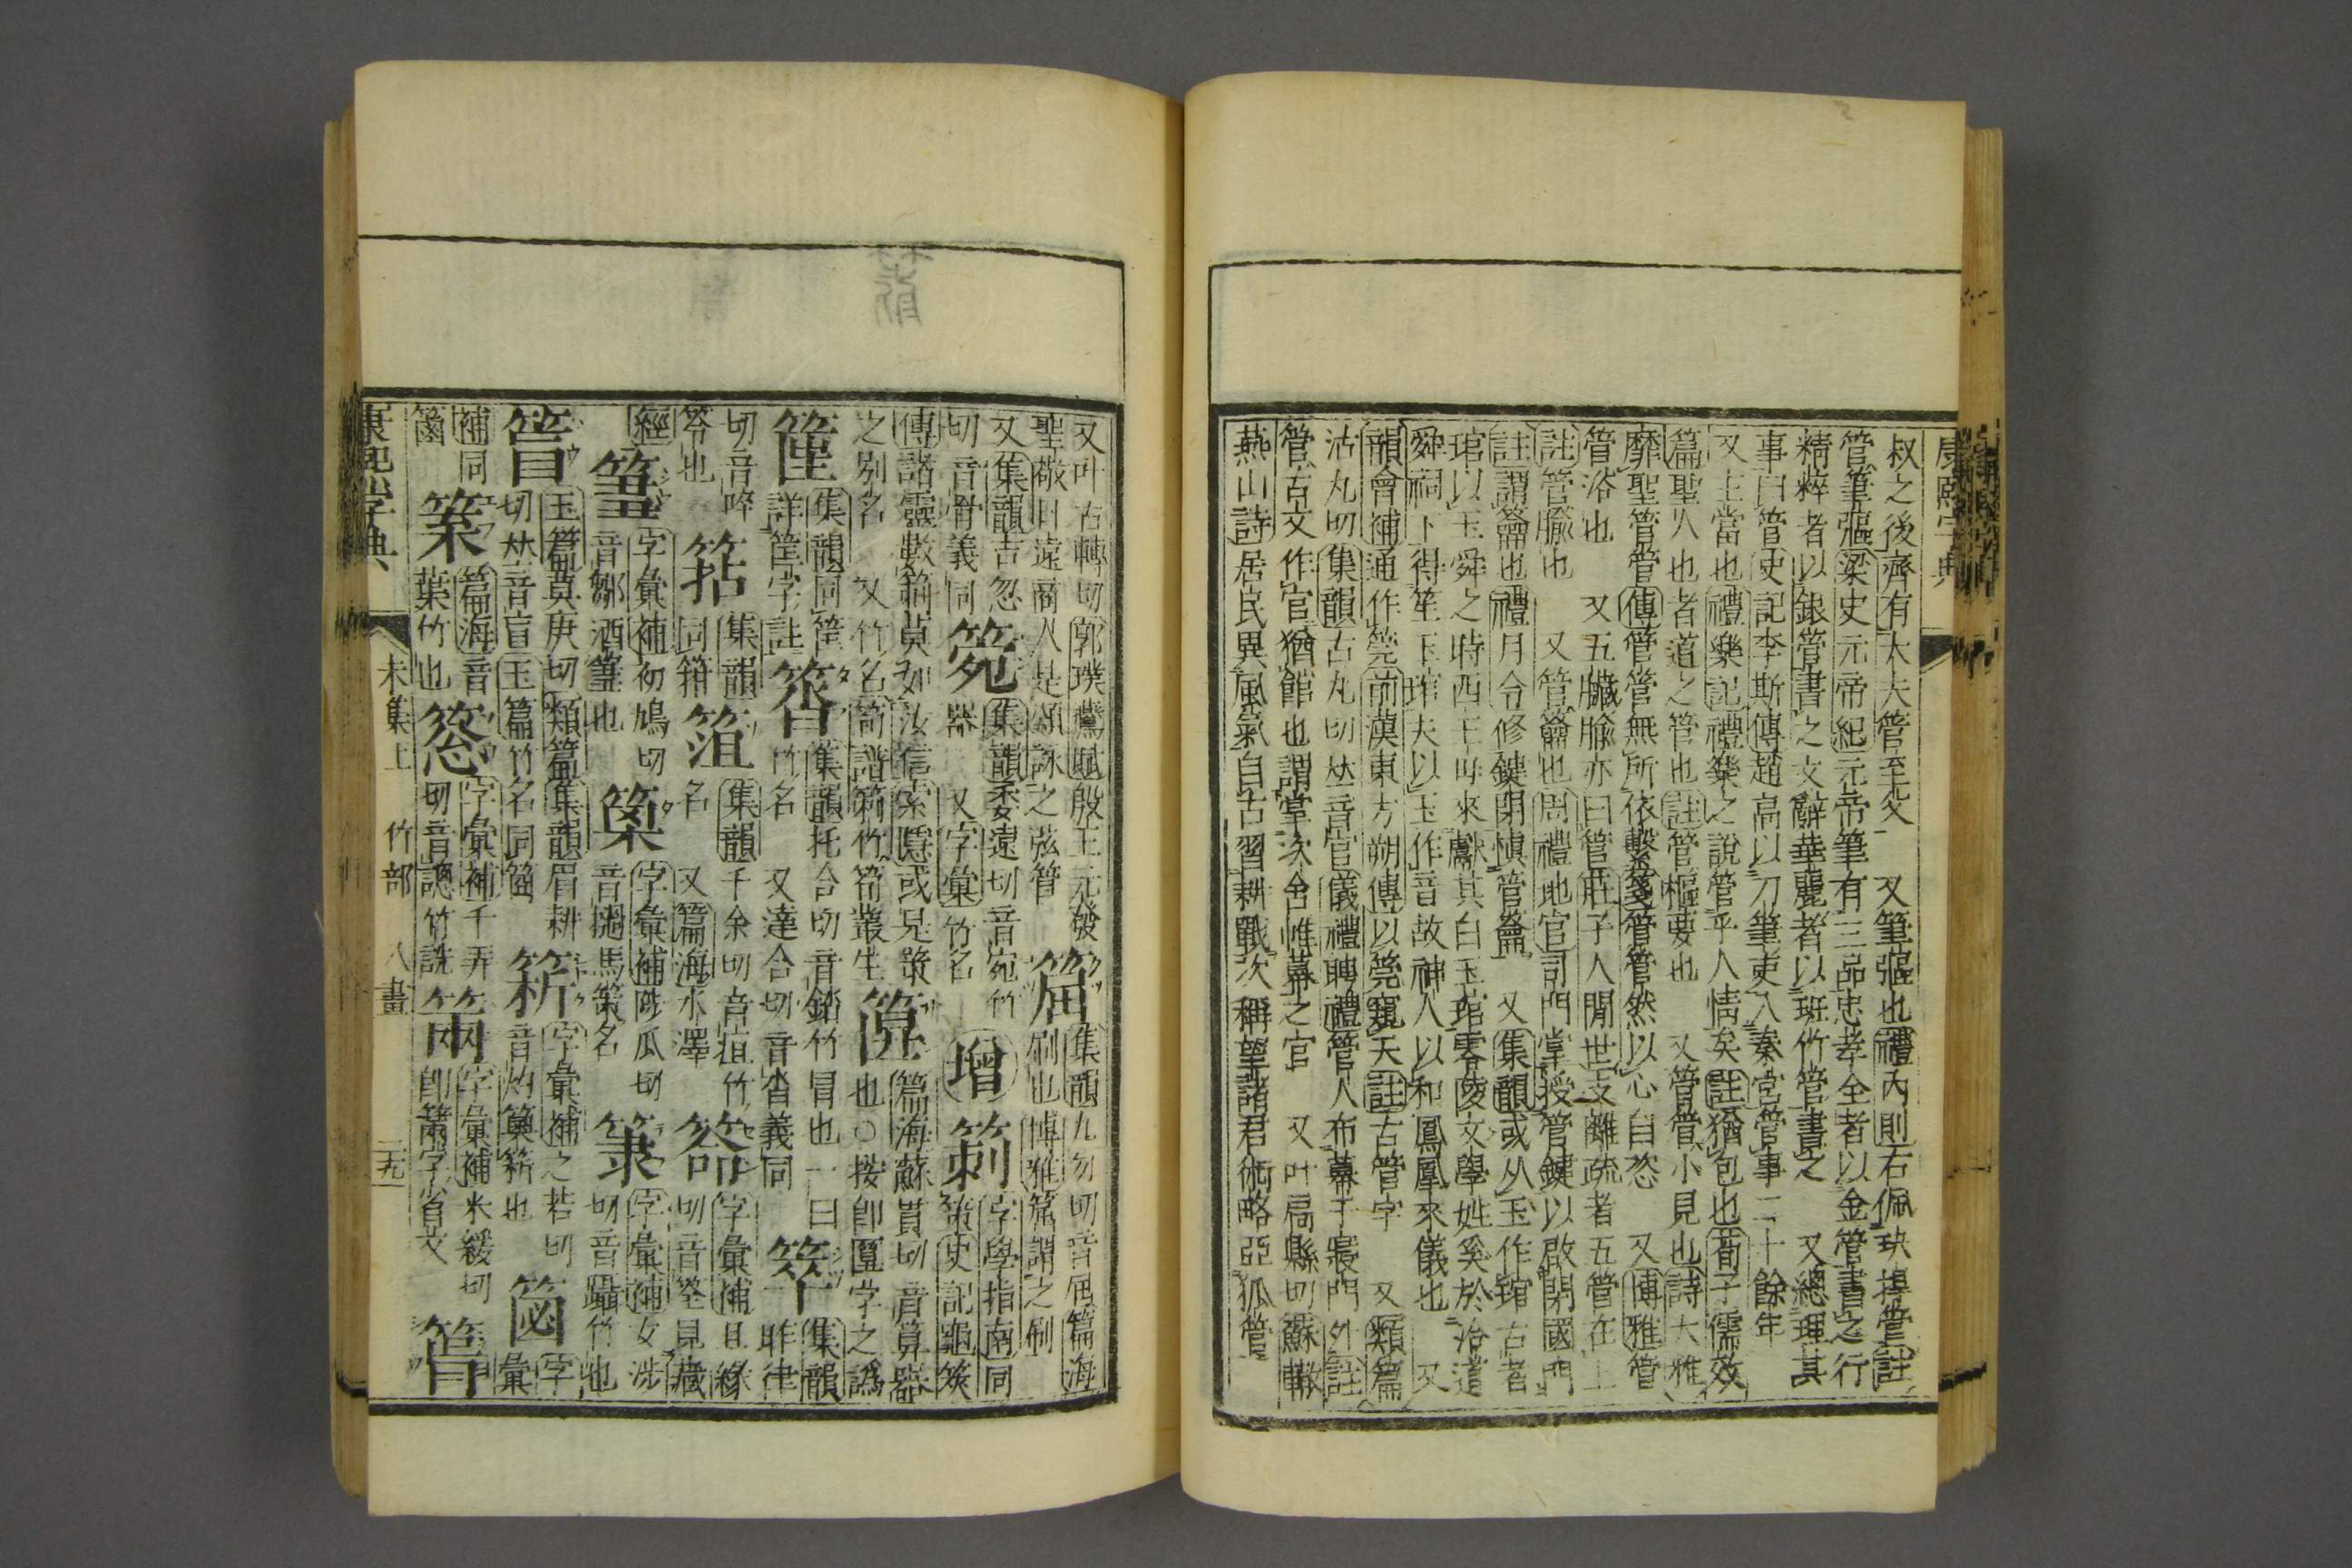 康熙字典
叔之後齊有大夫管至父　又筆彄也禮內則右佩玦捍管註
管筆彄梁史元帝紀元帝筆有三品忠孝全者以金管書之行
精粹者以銀管書之文辭華麗者以班竹管書之　又總理其
事曰管史記李斯傳趙高以刀筆吏入秦宮管事二十餘年
又主當也禮樂記禮樂之說管乎人情矣註猶包也荀子儒效
篇聖人也者道之管也註管樞要也　又管管小見也詩大雅
靡聖管管傳管管無所依繫箋管管然以心自恣　又博雅管
管浴也　又五臟腧亦曰管莊子人閒世支離疏者五管在上
註管腧也　又管籥也周禮地官司門掌授管鍵以啟閉國門
註謂籥也禮月令修鍵閉愼管籥　又集韻或从玉作琯古者
琯以玉舜之時西王母來獻其白玉琯零陵文學姓奚於泠道
舜祠下得笙玉琯夫以玉作音故神人以和鳳凰來儀也　又
韻會補通作筦前漢東方朔傳以筦窺天註古管字　又類篇
沽丸切集韻古丸切𠀤音官儀禮聘禮管人布幕于寢門外註
管古文作官猶館也謂掌次舍帷幕之官　又叶扃縣切蘇轍
燕山詩居民異風氣自古習耕戰次稱望諸君術略亞狐管
又叶古轉切郭璞鷰賦殷王元發
聖敬日遠商人是頌詠之弦管　𥮝集韻九勿切音屈篇海
刷也博雅𥮝謂之刷
又集韻吉忽
切音骨義同　箢集韻委遠切音宛竹
器　又字彙竹名　增　𥮖字學指南同
策史記龜筴
傳諸靈數箣莫如汝信索隱或見策
之別名　又竹名筍譜箣竹筍叢生　篹篇海蘇貫切音算器
也○按卽匴字之譌
篂集韻同筐
詳筐字註　𥮷集韻托合切音錔竹冒也一曰
竹名　又達合切音沓義同　箤集韻昨律
切音崒
笭也　𥮒集韻
同箝　𥮥集韻千余切音疽竹
名　又篇海水澤　𥮴字彙補且緣
切音筌見藏
經　𥯃字彙補初鳩切
音鄒酒𥯃也　𥯍字彙補陟瓜切
音撾馬策名　𥮗字彙補女涉
切音躡竹也
𥮕玉篇莫庚切類篇集韻眉耕
切𠀤音盲玉篇竹名同𥬹　𥮑字彙補之若切
音灼籗𥮑也　𥮪字
彙
補同
䈰　𥮘篇海音
葉竹也　𥮾字彙補千弄
切音謥竹𥮾　𥮊字彙補米緩切
卽䉲字省文　𥮣
康熙字典　未集上　竹部　八畫　二九